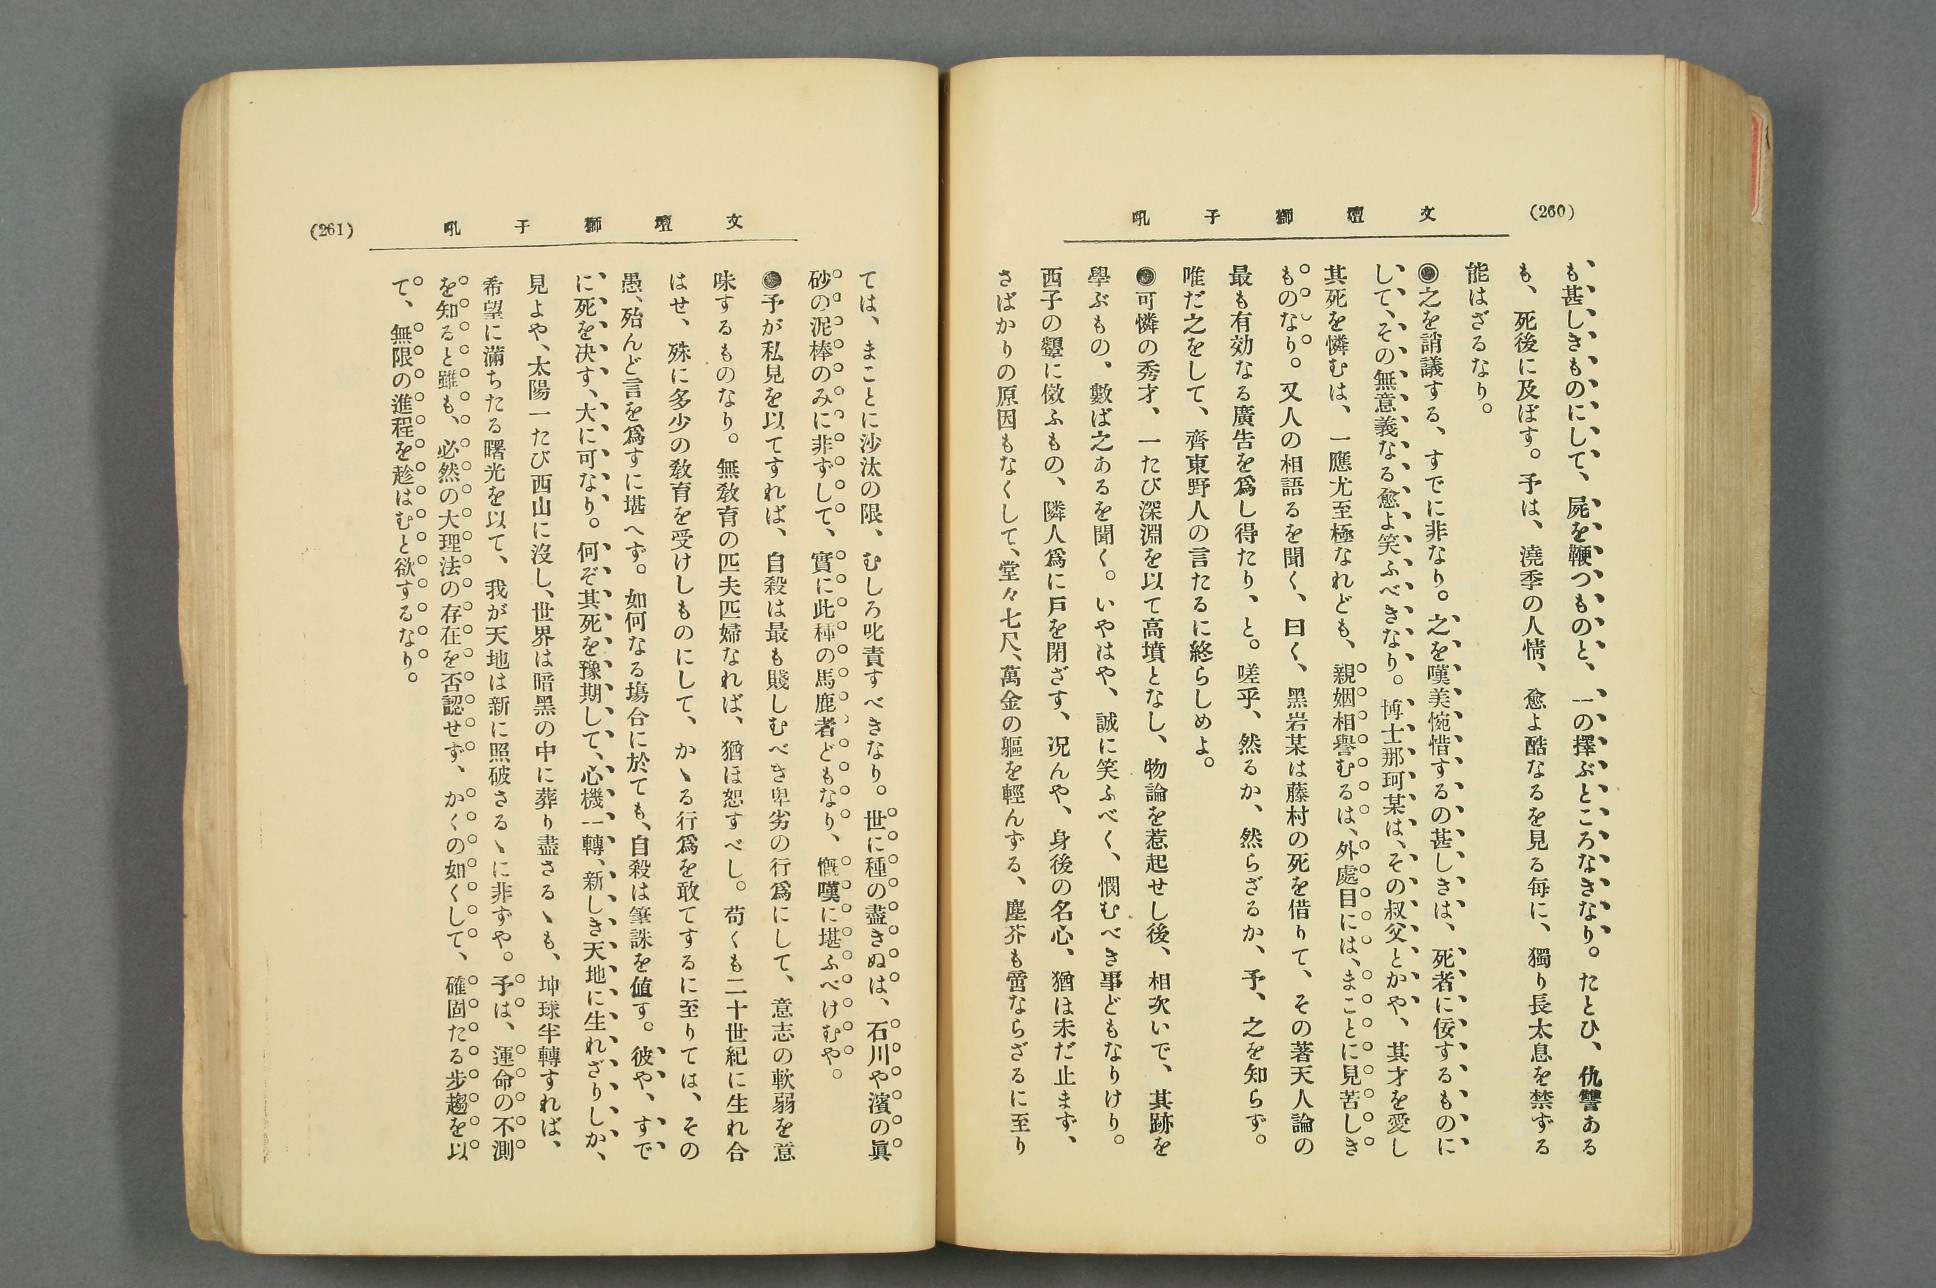 (260)
文壇獅子吼
も甚しきものにして、屍を鞭つものと、一の擇ぶところなきなり。たとひ、仇讐ある
も、死後に及ぼす。予は、澆季の人情、愈よ酷なるを見る毎に、獨り長太息を禁ずる
能はざるなり。
◉之を誚議する、すでに非なり。之を嘆美惋惜するの甚しきは、死者に佞するものに
して、その無意義なる愈よ笑ふべきなり。博士那珂某は、その叔父とかや、其才を愛し
其死を憐むは、一應尤至極なれども、親姻相譽むるは、外處目には、まことに見苦しき
ものなり。又人の相語るを聞く、曰く、黑岩某は藤村の死を借りて、その著天人論の
最も有効なる廣告を爲し得たり、と。嗟乎、然るか、然らざるか、予、之を知らず。
唯だ之をして、齊東野人の言たるに終らしめよ。
◉可憐の秀才、一たび深淵を以て高墳となし、物論を惹起せし後、相次いで、其跡を
學ぶもの、數ば之あるを聞く。いやはや、誠に笑ふべく、憫むべき事どもなりけり。
西子の顰に傚ふもの、隣人爲に戸を閉ざす、況んや、身後の名心、猶ほ未だ止まず、
さばかりの原因もなくして、堂々七尺、萬金の軀を輕んずる、塵芥も啻ならざるに至り
(261)
文壇獅子吼
ては、まことに沙汰の限、むしろ叱責すべきなり。世に種の盡きぬは、石川や濱の眞
砂の泥棒のみに非ずして、實に此種の馬鹿者どもなり、慨嘆に堪ふべけむや。
◉予が私見を以てすれば、自殺は最も賤しむべき卑劣の行爲にして、意志の軟弱を意
味するものなり。無敎育の匹夫匹婦なれば、猶ほ恕すべし。苟くも二十世紀に生れ合
はせ、殊に多少の敎育を受けしものにして、かゝる行爲を敢てするに至りては、その
愚、殆んど言を爲すに堪へず。如何なる塲合に於ても、自殺は筆誅を値す。彼や、すで
に死を决す、大に可なり。何ぞ其死を豫期して、心機一轉、新しき天地に生れざりしか、
見よや、太陽一たび西山に沒し、世界は暗黑の中に葬り盡さるゝも、坤球半轉すれば、
希望に滿ちたる曙光を以て、我が天地は新に照破さるゝに非ずや。予は、運命の不測
を知ると雖も、必然の大理法の存在を否認せず、かくの如くして、確固たる步趨を以
て、無限の進程を趁はむと欲するなり。